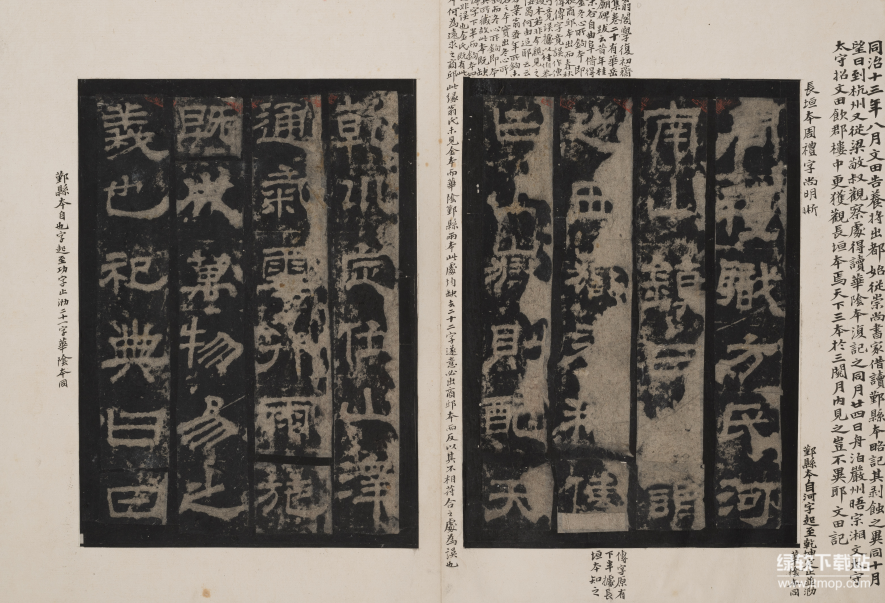 同治十三年八月文田告養將出都始從崇尚書家借讀鄞縣本略記其剝蝕之異同十月
望日到杭州又從梁敬叔觀察處得讀華陰本復記之同月廿四日舟泊嚴州晤宗湘文
太守招文田飲郡樓中更獲觀長垣本焉天下三本於三閱月內見之豈不異耶 文田記
長垣本周禮字尚明晰
鄞縣本自河字起至乾坤字止泐
華陰本同
周禮職方氏河
南山鎮曰謂
之西嶽春秋傳
曰山嶽則配天
傳字原有
下半據長
垣本知之
翁閣學復初齋
集卷二十有華岳
廟碑跋
此緣翁氏未見全本而華陰鄞縣兩本此處均缺去二十二字遂意必出商邱本而反以其不相符合之處為誤也
乾坤定位山澤
通氣雲行雨施
既成萬物易之
義也祀典曰日
鄞縣本自也字起至功字止泐二十一字華陰本同
绿软下载站
www.jtmop.com